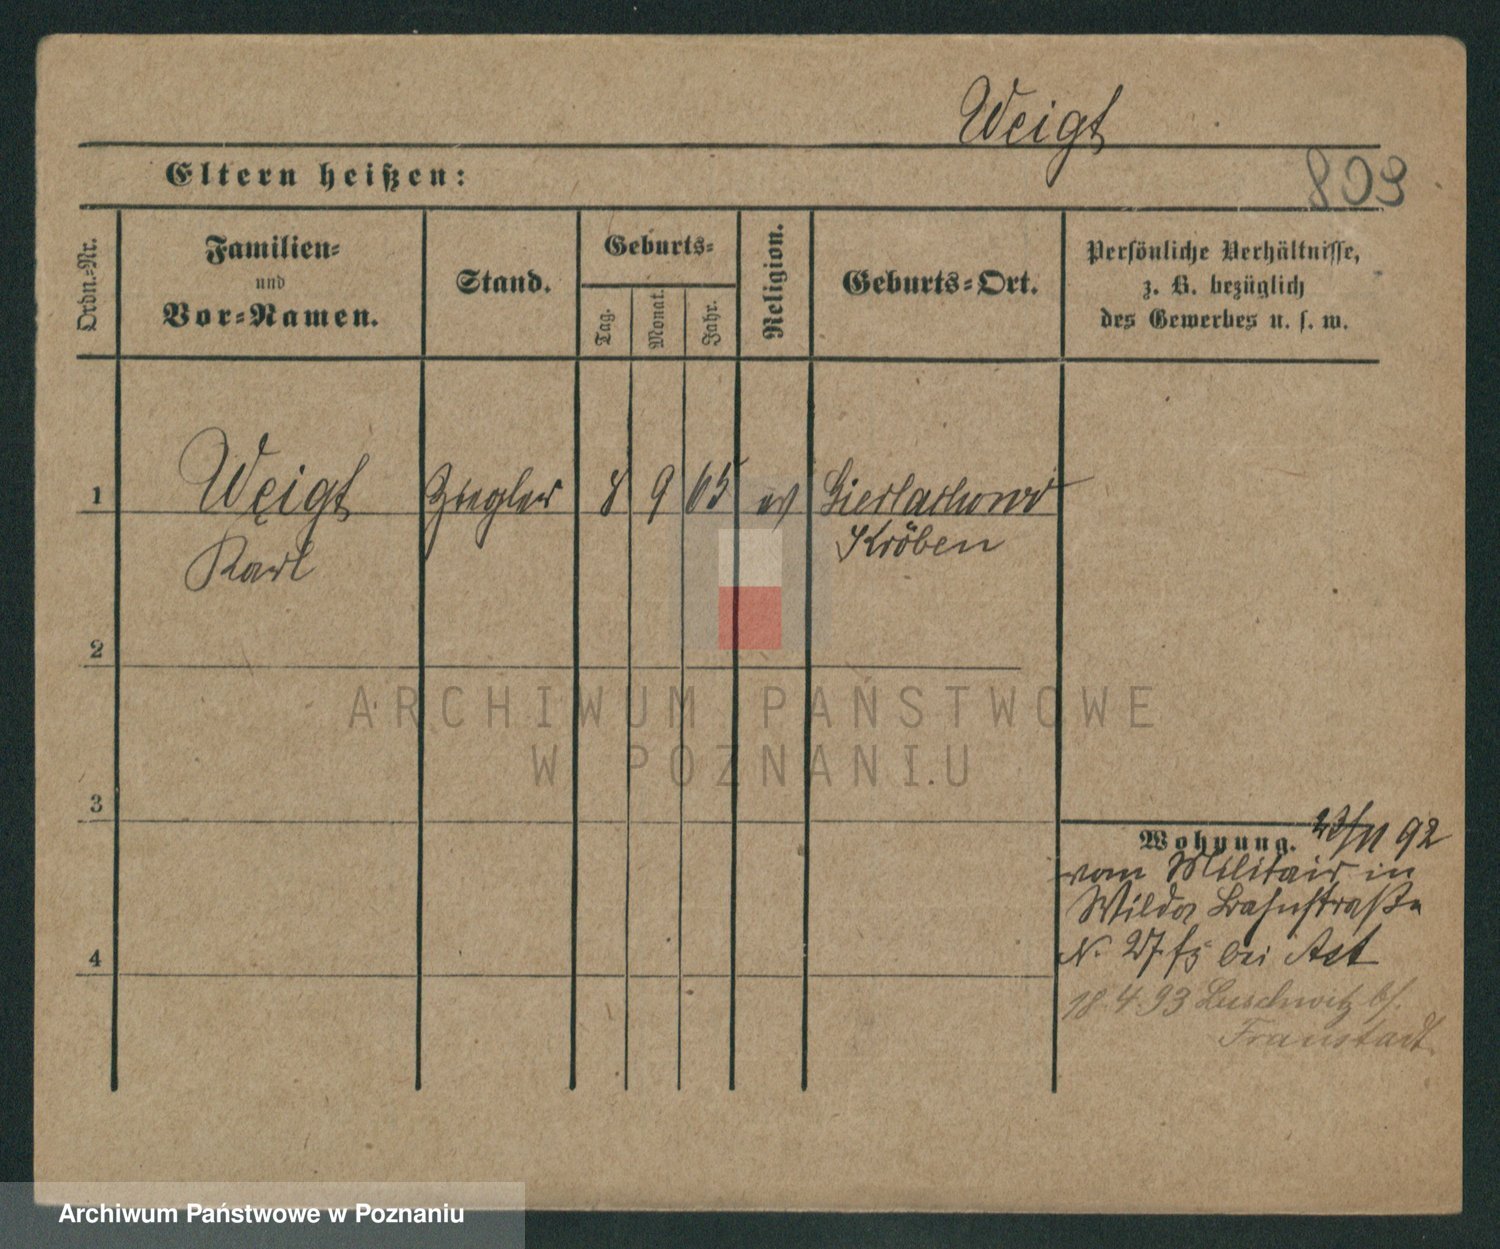 Weigt
Eltern heißen:
803
Ordn.-Nr.
Familien-
und
Vor-Namen.
Stand.
Geburts-
Tag.
Monat.
Jahr.
Religion.
Geburts-Ort.
Persönliche Verhältnisse,
z. B. bezüglich
des Gewerbes u. s. w.
1
Weigt
Karl
Ziegler
8
9
65
ev
Kröben
2
ARCHIWUM PAŃSTWOWE
W POZNANIU
3
Wohnung.
92
vom Militair in
Wilda Bahnstraße
N. 27 bei
4
18.4.93 Luschwitz b/.
Fraustadt
Archiwum Państwowe w Poznaniu